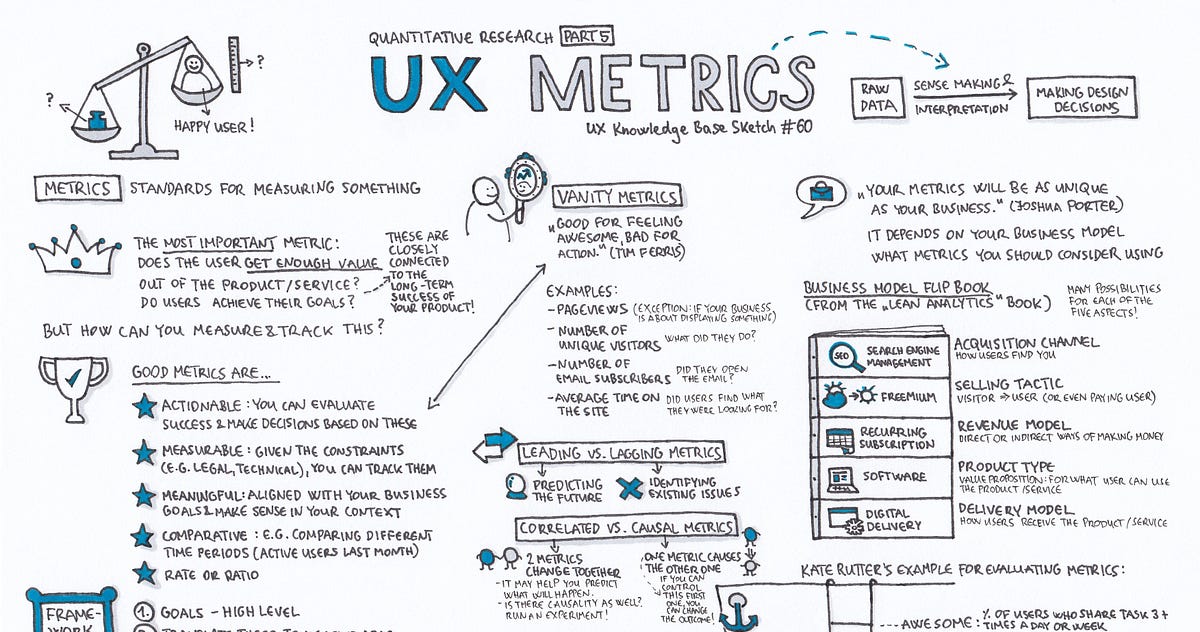 QUANTITATIVE RESEARCH PART 5
UX METRICS
UX Knowledge Base Sketch #60
?
?
HAPPY USER!
RAW
DATA
SENSE MAKING &
INTERPRETATION
MAKING DESIGN
DECISIONS
METRICS STANDARDS FOR MEASURING SOMETHING
THE MOST IMPORTANT METRIC:
DOES THE USER GET ENOUGH VALUE
OUT OF THE PRODUCT/SERVICE?
DO USERS ACHIEVE THEIR GOALS?
THESE ARE
CLOSELY
CONNECTED
TO THE
LONG-TERM
SUCCESS OF
YOUR PRODUCT!
BUT HOW CAN YOU MEASURE & TRACK THIS?
GOOD METRICS ARE...
ACTIONABLE: YOU CAN EVALUATE
SUCCESS & MAKE DECISIONS BASED ON THESE
MEASURABLE: GIVEN THE CONSTRAINTS
(E.G. LEGAL, TECHNICAL), YOU CAN TRACK THEM
MEANINGFUL: ALIGNED WITH YOUR BUSINESS
GOALS & MAKE SENSE IN YOUR CONTEXT
COMPARATIVE: E.G. COMPARING DIFFERENT
TIME PERIODS (ACTIVE USERS LAST MONTH)
RATE OR RATIO
FRAME-
WORK
1. GOALS - HIGH LEVEL
VANITY METRICS
„GOOD FOR FEELING
AWESOME, BAD FOR
ACTION." (TIM FERRIS)
EXAMPLES:
- PAGEVIEWS (EXCEPTION: IF YOUR BUSINESS
IS ABOUT DISPLAYING SOMETHING)
- NUMBER OF
UNIQUE VISITORS WHAT DID THEY DO?
- NUMBER OF
EMAIL SUBSCRIBERS DID THEY OPEN
THE EMAIL?
- AVERAGE TIME ON
THE SITE DID USERS FIND WHAT
THEY WERE LOOKING FOR?
LEADING VS. LAGGING METRICS
PREDICTING
THE FUTURE
IDENTIFYING
EXISTING ISSUES
CORRELATED VS. CAUSAL METRICS
2 METRICS
CHANGE TOGETHER
- IT MAY HELP YOU PREDICT
WHAT WILL HAPPEN.
- IS THERE CAUSALITY AS WELL?
RUN AN EXPERIMENT!
ONE METRIC CAUSES
THE OTHER ONE
IF YOU CAN
CONTROL
THIS FIRST
ONE, YOU
CAN CHANGE
THE OUTCOME!
„YOUR METRICS WILL BE AS UNIQUE
AS YOUR BUSINESS." (JOSHUA PORTER)
IT DEPENDS ON YOUR BUSINESS MODEL
WHAT METRICS YOU SHOULD CONSIDER USING
BUSINESS MODEL FLIP BOOK
(FROM THE „LEAN ANALYTICS" BOOK)
MANY POSSIBILITIES
FOR EACH OF THE
FIVE ASPECTS!
SEO SEARCH ENGINE
MANAGEMENT
ACQUISITION CHANNEL
HOW USERS FIND YOU
FREEMIUM
SELLING TACTIC
VISITOR → USER (OR EVEN PAYING USER)
RECURRING
SUBSCRIPTION
REVENUE MODEL
DIRECT OR INDIRECT WAYS OF MAKING MONEY
SOFTWARE
PRODUCT TYPE
VALUE PROPOSITION: FOR WHAT USER CAN USE
THE PRODUCT/SERVICE
DIGITAL
DELIVERY
DELIVERY MODEL
HOW USERS RECEIVE THE PRODUCT/SERVICE
KATE RUTTER'S EXAMPLE FOR EVALUATING METRICS:
AWESOME: % OF USERS WHO SHARE TASK 3+
TIMES A DAY OR WEEK